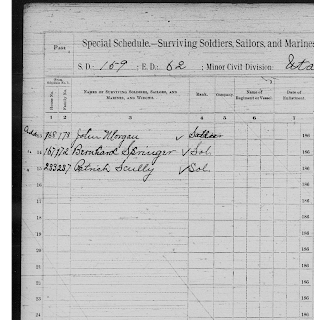 PAGE
Special Schedule.—Surviving Soldiers, Sailors, and Marines
S. D.: 159 ; E. D.: 62 ; Minor Civil Division:
House No.
Family No.
NAMES OF SURVIVING SOLDIERS, SAILORS, AND MARINES, AND WIDOWS.
Rank.
Company.
Name of Regiment or Vessel
Date of Enlistment.
1 2 3 4 5 6 7
168 173 John Morgan 186
" 167 172 Bernhard Springer ✓ Sol 186
" 233 237 Patrick Scully ✓ Sol. 186
186
186
186
186
186
186
186
186